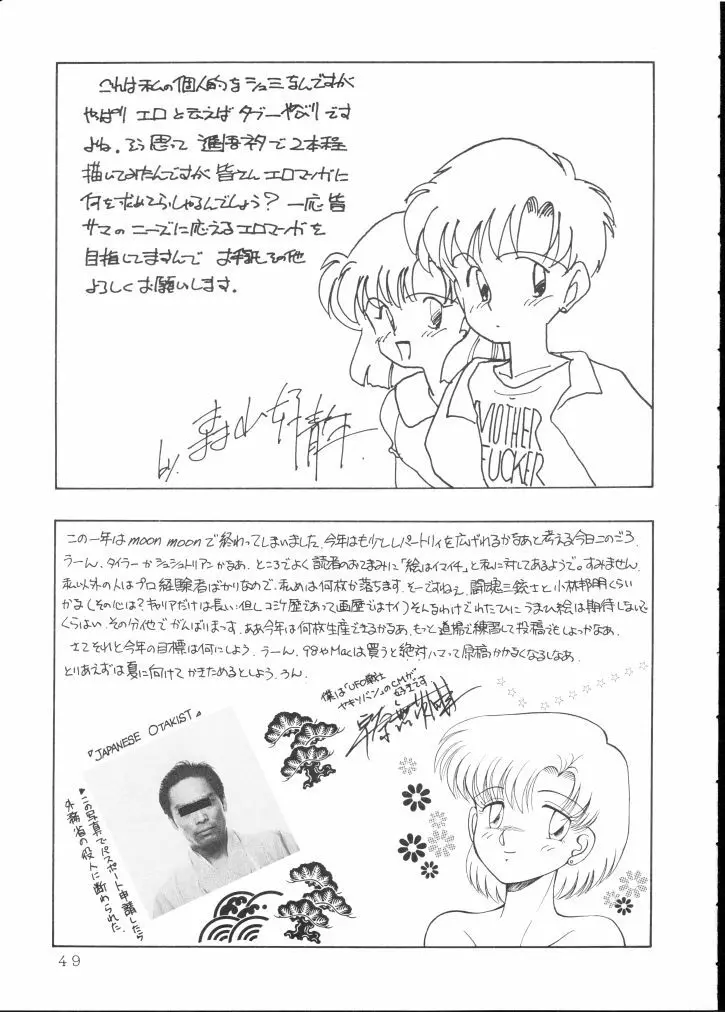 これは私の個人的なシュミなんですが
やっぱり エロ と云えば タブーやぶり です
よね。そう思って 近親ネタで 2本程
描いてみたんですが 皆さん エロマンガに
何を求めてらっしゃるんでしょう? 一応 皆
サマの ニーズに応えるエロマンガを
目指してますんで お手紙その他
よろしく お願いします。
by.
MOTHER
FUCKER
この一年は moon moon で 終わってしまいました。今年はも少ししレパートリィを広げれるかなあと考える今日このごろ.
うーん、タイラーかシュシュトリアンかなあ。ところでよく読者のおてまみに「絵はイマイチ」と私に対してあるようで。すみません
私以外の人はプロ経験者ばかりなので、私めは何枚か落ちます。そーですねえ、闘魂三銃士と小林邦明くらい
かな(その心は?キャリアだけは長い。但しコミケ歴であって画歴ではナイ)そんなわけでわたていに うまい絵は期待しないで
くらはい その分他で がんばりまっす。ああ今年は何枚生産できるかなあ、もっと道場で練習して投稿でもしよっかなあ.
さてそれと今年の目標は何にしよう。うーん。98やMacは買うと絶対ハマって原稿かかなくなるしなあ
とりあえずは夏に向けて かきためるとしよう。うん.
僕は「UFO戦士
ヤキソバン」のCMが
好きです
『JAPANESE OTAKIST』
この写真でパスポート申請したら
外務省の役人に断められた.
49